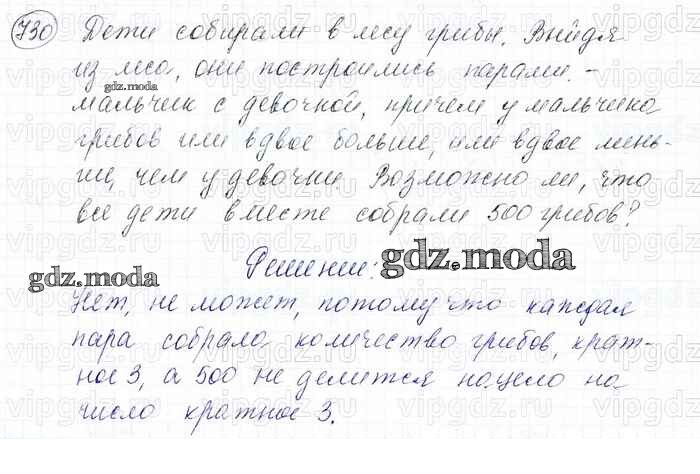 730 Дети собирали в лесу грибы. Выйдя
из леса, они построились парами. -
gdz.moda
мальчик с девочкой, причем у мальчика
грибов или вдвое больше, или вдвое мень-
ше, чем у девочки. Возможно ли, что
все дети вместе собрали 500 грибов?
Решение:
gdz.moda
gdz.moda
Нет, не может, потому что каждая
пара собрала количество грибов, крат-
ное 3, а 500 не делится нацело на
число кратное 3.
gdz.moda
vipgdz.ru